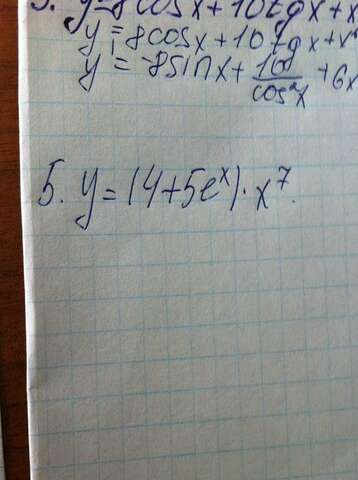 5. y=8cosx+10tgx+x
y=8cosx+10tgx+x⁶
y'=-8sinx+10/cos²x+6x
5. y=(4+5eˣ)·x⁷.